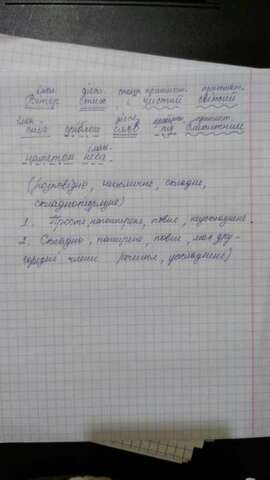 імен. дієсл. сполуч. прикметн. прикметн.
Вітер стих, і чистий свіжий
імен. дієсл. приймен. прикмет.
сніг сяяв під блакитним
імен.
наметом неба.
(розповідне, неокличне, складне,
складнопідрядне)
1. Просте, непоширене, повне, неускладнене.
2. Складне, поширене, повне, має дру-
городні члени речення, ускладнене)